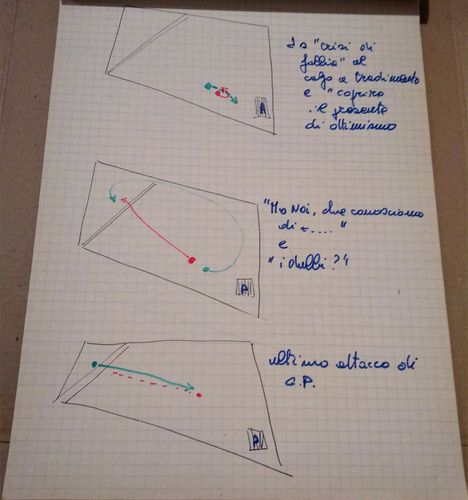 da "crisi di
follia" al
colpo a tradimento
e "coprire
di ottimismo
A
"Ma Noi, che conosciamo
di t...."
e
"i dubbi?"
A
ultimo attacco di
C.P.
A